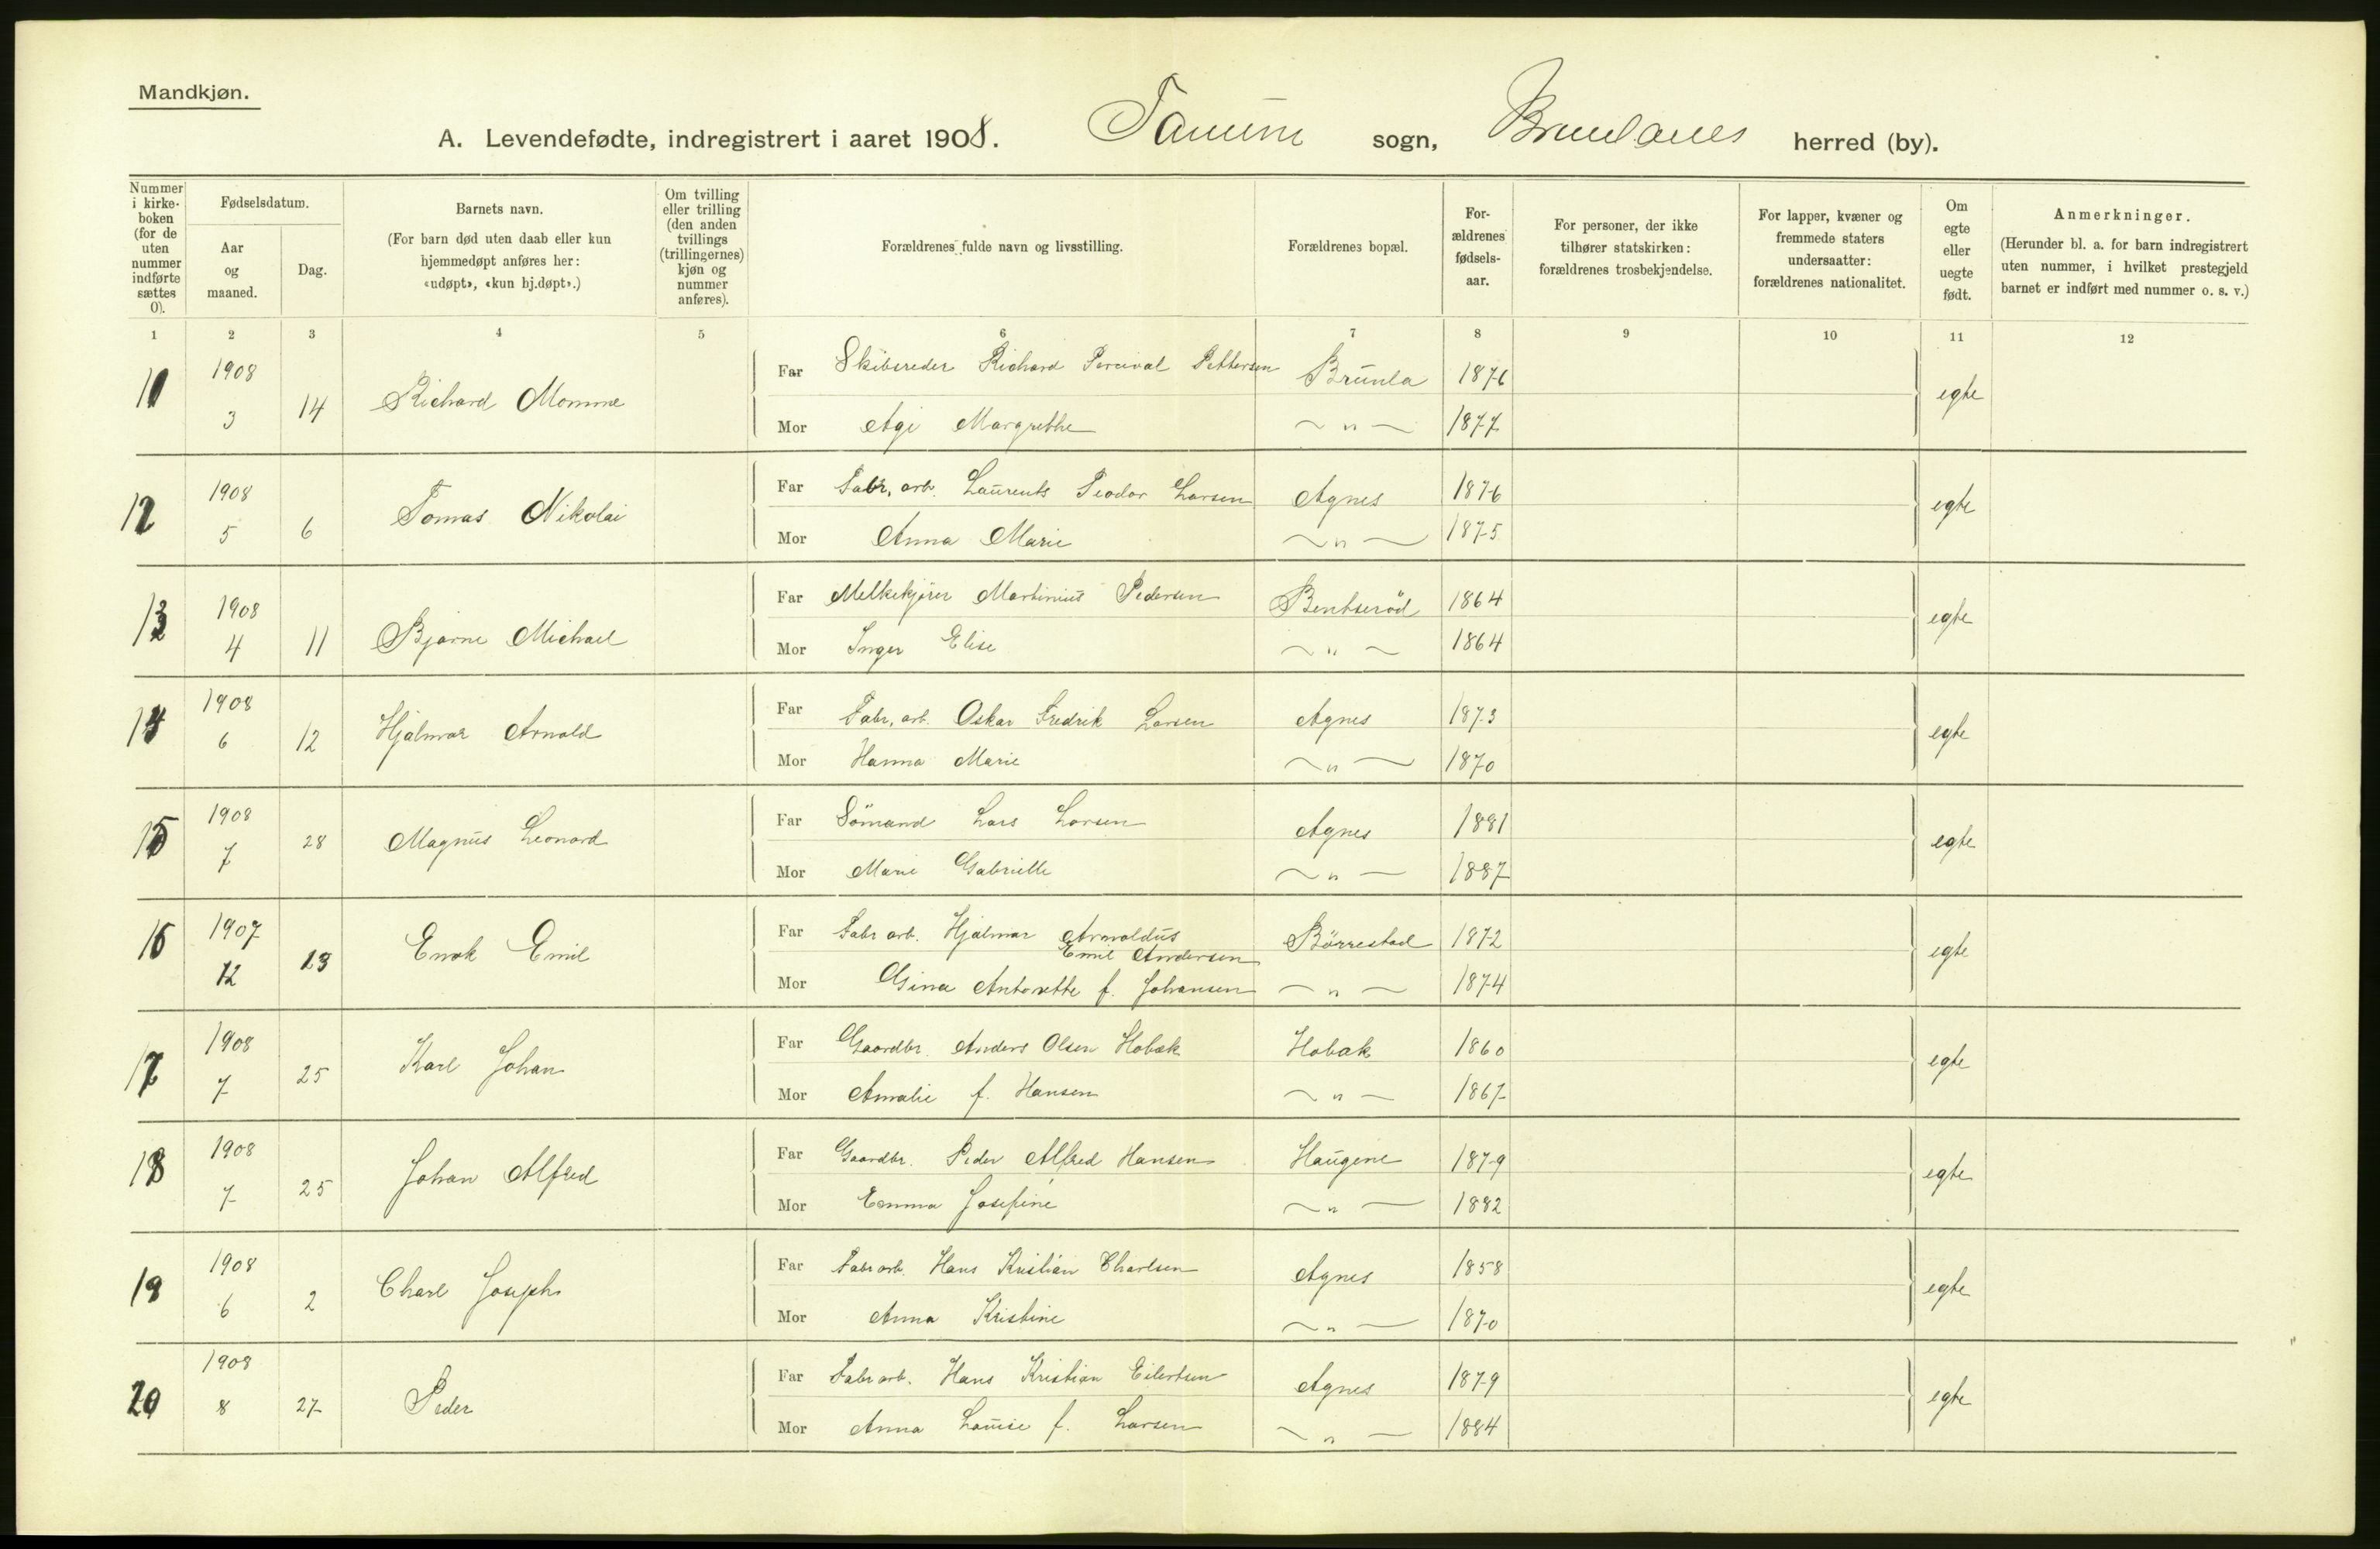 Mandkjøn.
A. Levendefødte, indregistrert i aaret 1908. Tanum sogn, Brunlanes herred (by).
Nummer i kirkeboken (for de uten nummer indførte sættes 0).
Fødselsdatum.
Aar og maaned.
Dag.
Barnets navn.
(For barn død uten daab eller kun hjemmedøpt anføres her: «udøpt», «kun hj.døpt».)
Om tvilling eller trilling (den anden tvillings (trillingernes) kjøn og nummer anføres).
Forældrenes fulde navn og livsstilling.
Forældrenes bopæl.
Forældrenes fødselsaar.
For personer, der ikke tilhører statskirken: forældrenes trosbekjendelse.
For lapper, kvæner og fremmede staters undersaatter: forældrenes nationalitet.
Om egte eller uegte født.
Anmerkninger.
(Herunder bl. a. for barn indregistrert uten nummer, i hvilket prestegjeld barnet er indført med nummer o. s. v.)
1 2 3 4 5 6 7 8 9 10 11 12
11 1908 3 14 Richard Momme Far Skibsreder Richard Percival Pettersen Brunla 1876 egte
Mor Agi Margrethe — " — 1877
12 1908 5 6 Tomas Nikolai Far Fabr. arb. Laurents Teodor Larsen Agnes 1876 egte
Mor Anna Marie — " — 1875
13 1908 4 11 Bjarne Michael Far Melkekjører Martinius Pedersen Bentserød 1864 egte
Mor Inger Elise — " — 1864
14 1908 6 12 Hjalmar Arnold Far Fabr. arb. Oskar Fredrik Larsen Agnes 1873 egte
Mor Hanna Marie — " — 1870
15 1908 7 28 Magnus Leonard Far Sömand Lars Larsen Agnes 1881 egte
Mor Marie Gabrielle — " — 1887
16 1907 12 13 Enok Emil Far Fabr arb. Hjalmar Arnoldus Emil Andersen Börrestad 1872 egte
Mor Gina Antonette f. Johansen — " — 1874
17 1908 7 25 Karl Johan Far Gaardbr. Anders Olsen Hobæk Hobæk 1860 egte
Mor Amalie f. Hansen — " — 1867
18 1908 7 25 Johan Alfred Far Gaardbr. Peder Alfred Hansen Haugene 1879 egte
Mor Emma Josefine — " — 1882
19 1908 6 2 Charl Joseph Far Fabr arb. Hans Kristian Charlsen Agnes 1858 egte
Mor Anna Kristine — " — 1870
20 1908 8 27 Peder Far Fabr arb. Hans Kristian Eilertsen Agnes 1879 egte
Mor Anna Louise f. Larsen — " — 1884